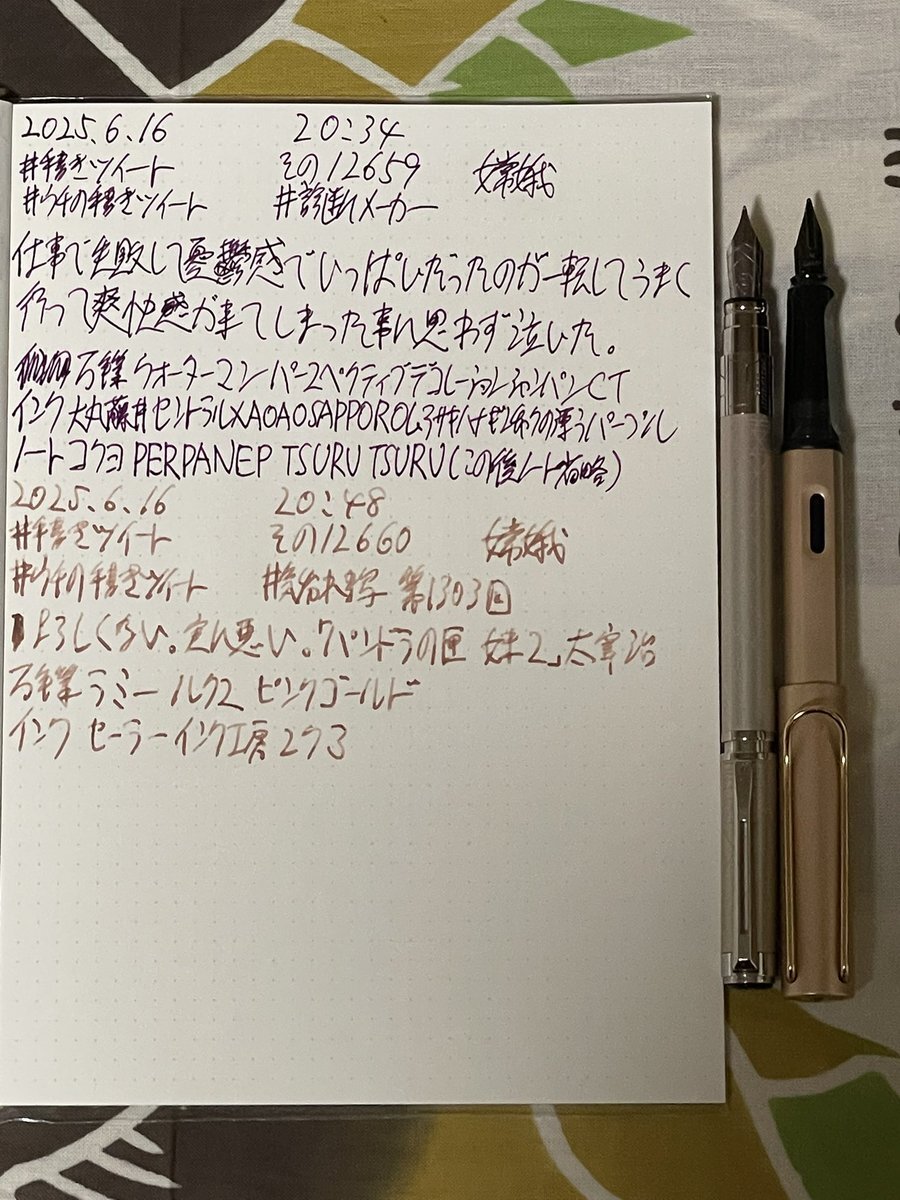 2025.6.16 20:34
#手書きツイート その12659 嫦娥
#ウチの手書きツイート #診断メーカー
仕事で失敗して憂鬱感でいっぱいだったのが一転してうまく
行って爽快感が来てしまった事に思わず泣いた。
万年筆 ウォーターマン パースペクティブデコレーションシャンパンCT
インク 大丸藤井セントラルXAOAOSAPPORO ムラサキハナナ 香りの漂うパープル
ノート コクヨ PERPANEP TSURU TSURU(この後ノート省略)
2025.6.16 20:48
#手書きツイート その12660 嫦娥
#ウチの手書きツイート 第1303回
よろしくない。実に悪い。「パンドラの匣 妹2」太宰治
万年筆 ラミー ルクス ピンクゴールド
インク セーラーインク工房273